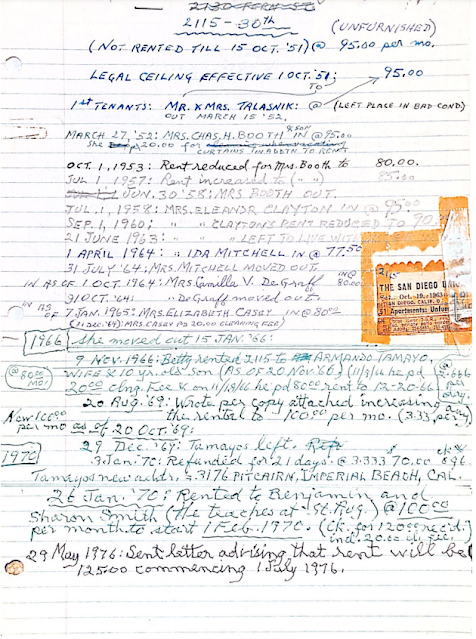 2115 - 30th
(UNFURNISHED)
(NOT RENTED TILL 15 OCT. '51) @ 95.00 per mo.
LEGAL CEILING EFFECTIVE 1 OCT. '51; 95.00
TO
1st TENANTS: MR. & MRS. TALASNIK: @ (LEFT PLACE IN BAD COND)
OUT MARCH 15 '52.
MARCH 27, '52: MRS. CHAS. H. BOOTH & SON IN @ 95.00
She 20.00 for
CURTAINS IN ADDTN TO RENT
OCT. 1, 1953: Rent reduced for Mrs. Booth to 80.00.
JUL 1, 1957: Rent increased to (" ") 85.00
JUN. 30 '58: MRS BOOTH OUT.
JUL. 1, 1958: MRS. ELEANOR CLAYTON IN @ 95.00
SEP. 1, 1960; " CLAYTON'S RENT REDUCED TO 90.
21 JUNE 1963: " " LEFT TO LIVE
1 APRIL 1964: " IDA MITCHELL IN @ 77.50
31 JULY '64: MRS. MITCHELL MOVED OUT
IN AS OF 1 OCT. 1964: Mrs. Camille V. De Graff IN @ 80.00
31 OCT. '64: " De Graff moved out.
IN AS OF 7 JAN. 1965: MRS. ELIZABETH CASEY IN @ 80.00
(11 DEC. '64: MRS. CASEY PD 20.00 CLEANING FEE)
2115
THE SAN DIEGO
Sat., Oct. 19, 1963
SAN DIEGO, CALIF.
51 Apartments: Unfur
1966 She moved out 15 JAN. '66:
9 NOV. 1966: Betty rented 2115 to ARMANDO TAMAYO,
@ 80.00 MO. WIFE & 10 yr. old son (AS OF 20 NOV. '66) (11/9/66 he pd
20.00 clng. Fee & on 11/19/66 he pd 80.00 rent to 12-20-66
20 Aug. '69: Wrote per copy attached increasing
Now 100.00 the rental to 100.00 per mo. (3.33 per day)
per mo as of 20 OCT. '69:
1970 29 Dec. '69: Tamayos left.
3 Jan. '70: Refunded for 21 days @ 3.333 70.00
Tamayos new addr. is 3176 PITCAIRN, IMPERIAL BEACH, CAL.
26 Jan. '70: Rented to Benjamin and
Sharon Smith (He teaches at St. Aug.) @ 100.00
per month to start 1 Feb. 1970. (Ck. for 120.00 rec'd.)
incl. 20.00 cl. fee.
29 May 1976: Sent letter advising that rent will be
125.00 commencing 1 July 1976.